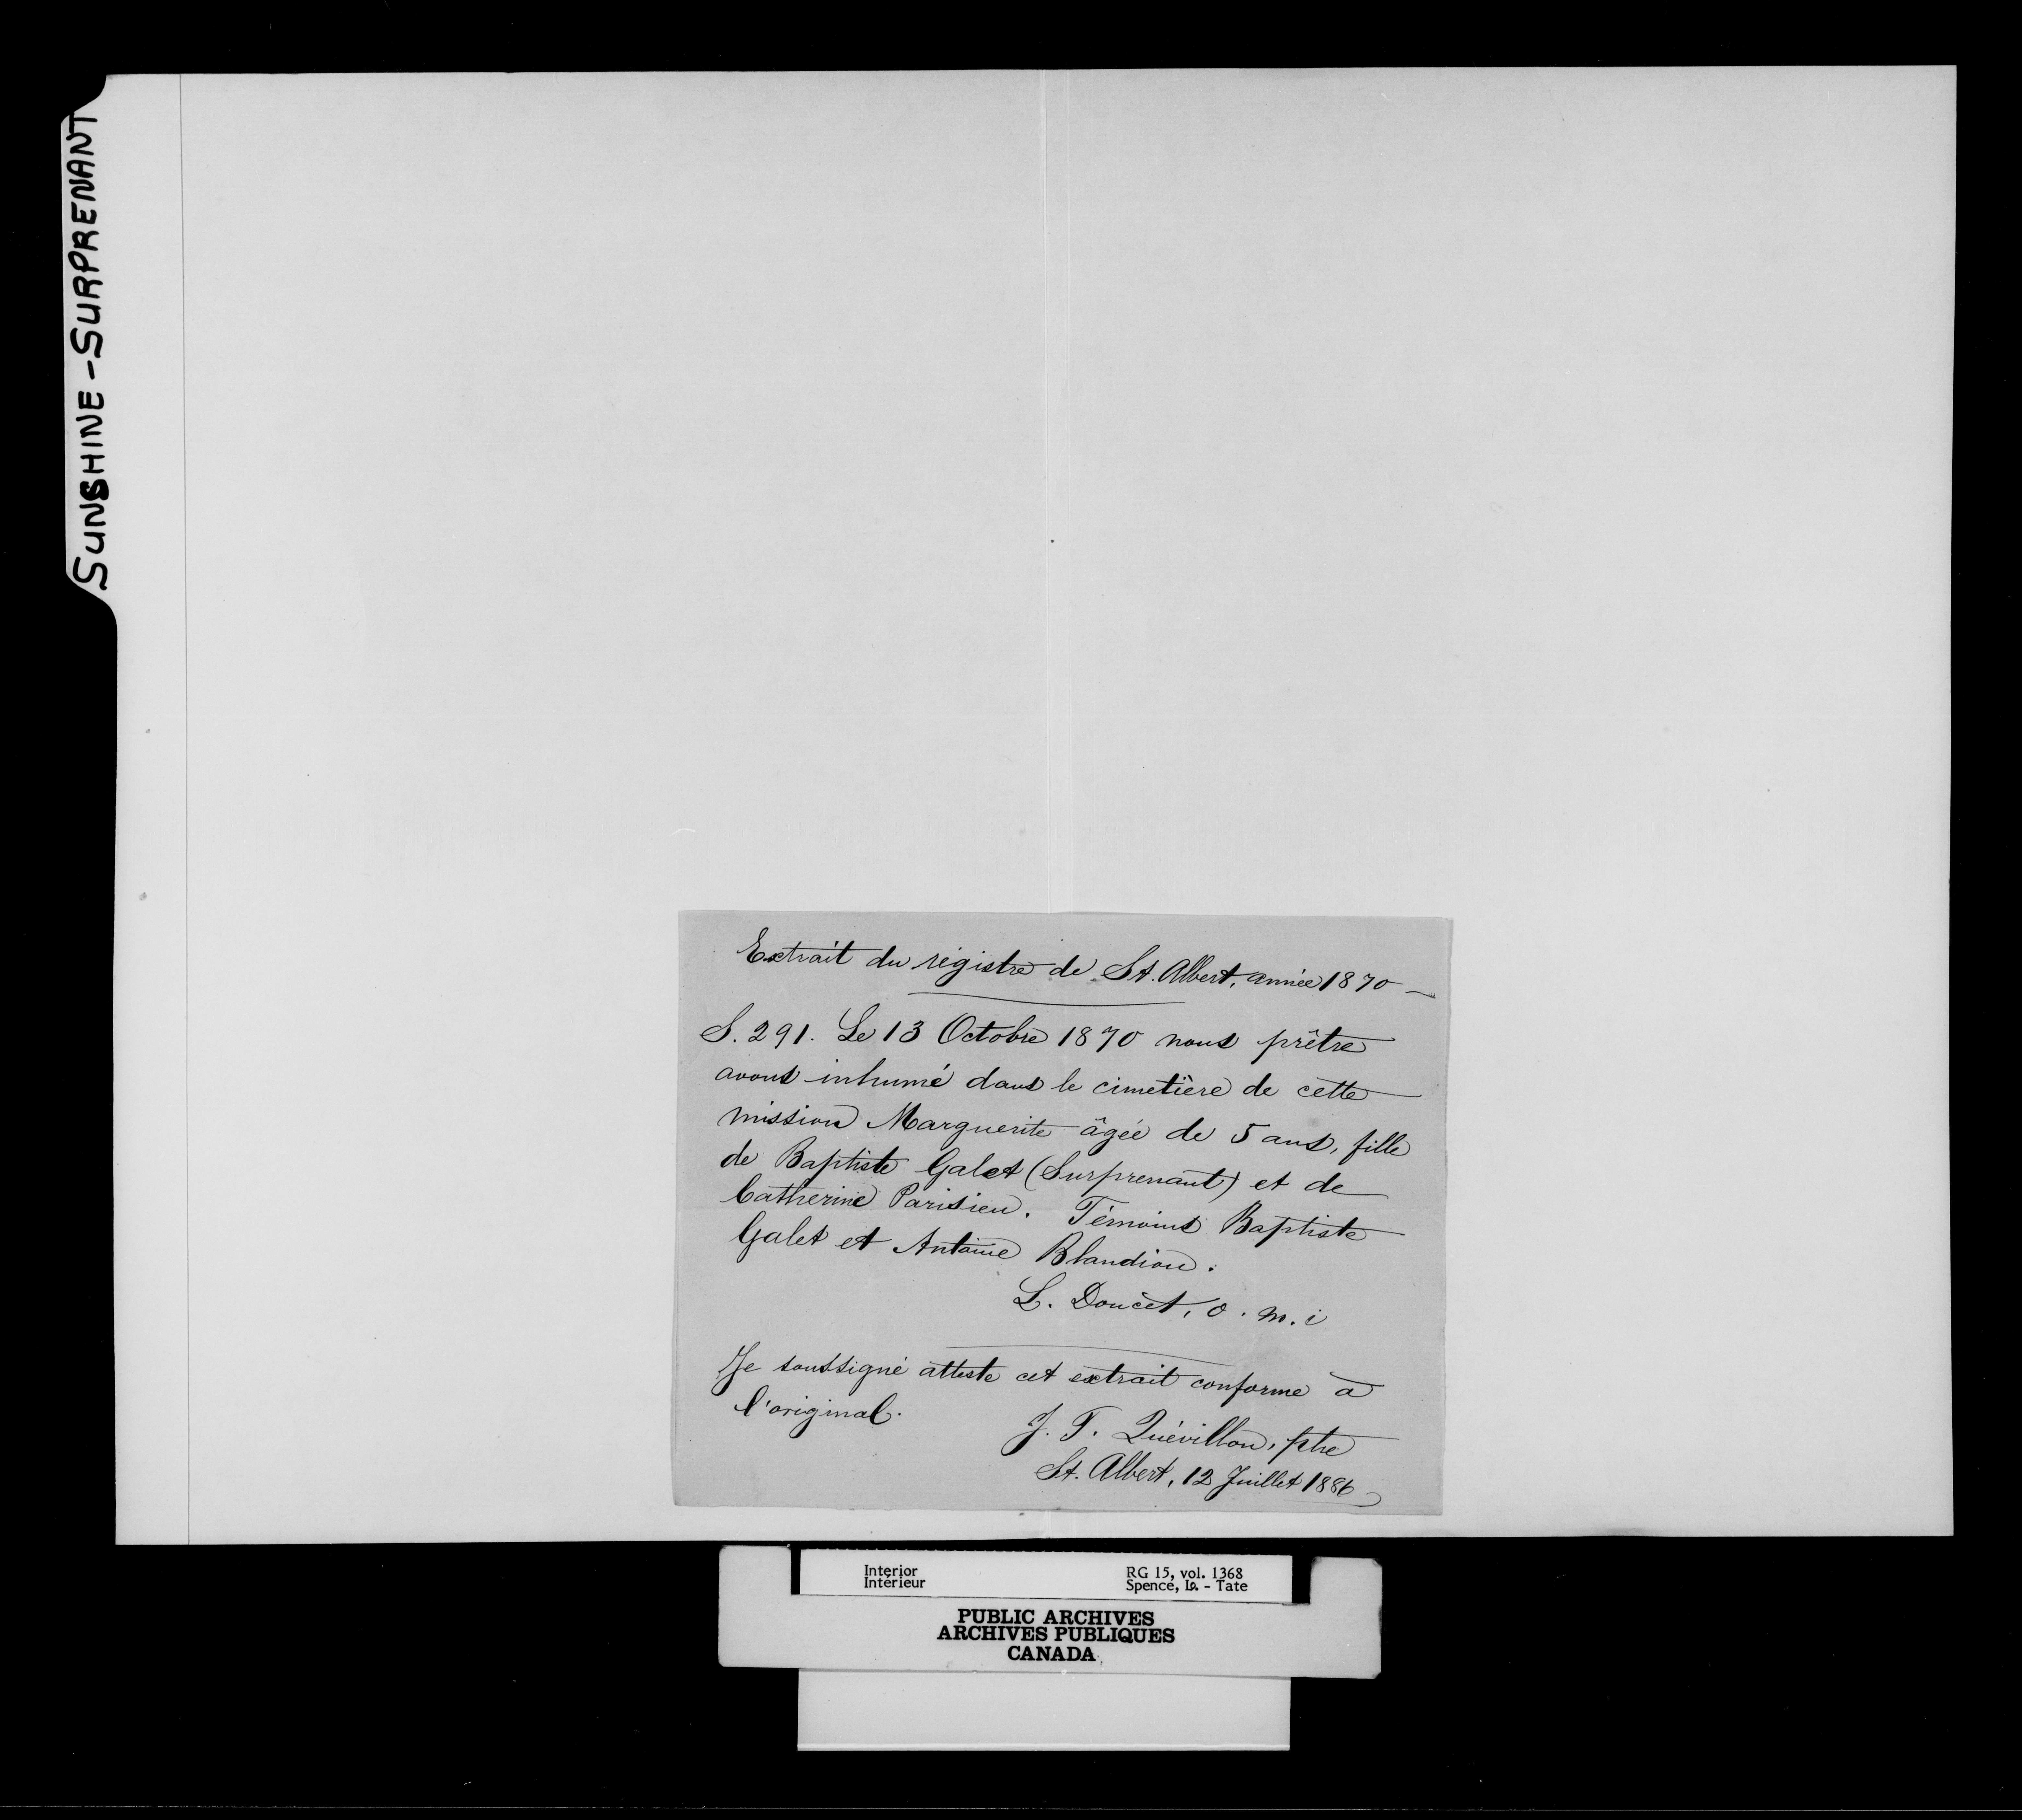 SUNSHINE - SURPRENANT
Extrait du régistre de St. Albert, année 1870 —
S. 291. Le 13 Octobre 1870 nous prêtre
avons inhumé dans le cimetière de cette
mission Marguerite âgée de 5 ans, fille
de Baptiste Galet (Surprenant) et de
Catherine Parisien. Témoins Baptiste
Galet et Antoine Blandion.
L. Doucet, o. m. i
Je soussigné atteste cet extrait conforme à
l'original.
J. T. Quévillon, ptre
St. Albert, 12 Juillet 1886
Interior
Intérieur
RG 15, vol. 1368
Spence, Is. - Tate
PUBLIC ARCHIVES
ARCHIVES PUBLIQUES
CANADA